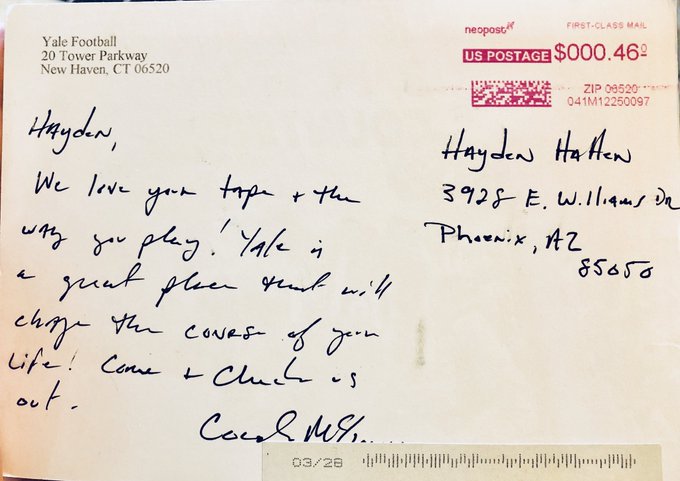 Yale Football
20 Tower Parkway
New Haven, CT 06520
neopost
FIRST-CLASS MAIL
US POSTAGE $000.46⁰
ZIP 06520
041M12250097
Hayden,
We love your tape + the
way you play! Yale is
a great place that will
change the course of your
Life! Come + Check us
out.
Coach
Hayden Hatten
3928 E. Williams Dr
Phoenix, AZ
85050
03/28